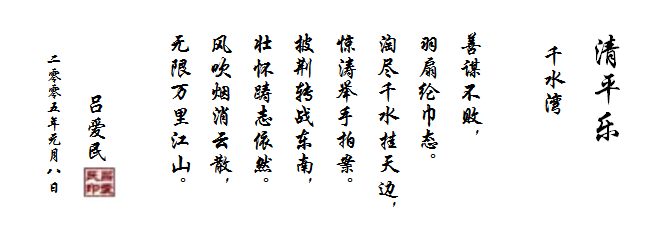 清平乐
千水湾
善谋不败，
羽扇纶巾态。
淘尽千水挂天边，
惊涛举手拍案。
披荆转战东南，
壮怀踌志依然。
风吹烟消云散，
无限万里江山。
吕爱民
二零零五年元月八日